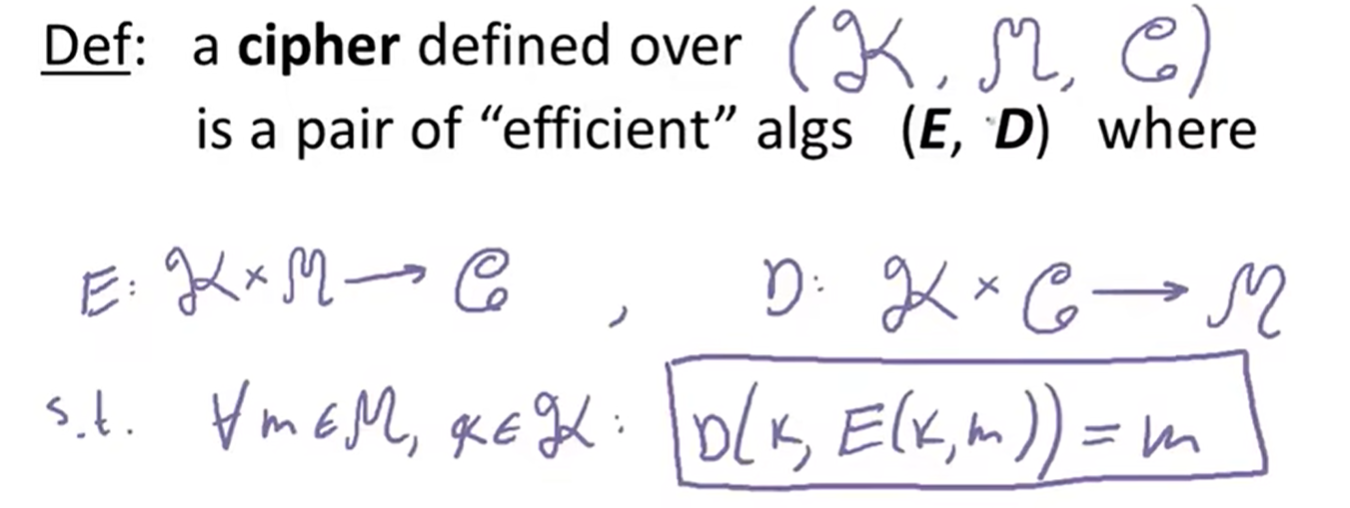 Def: a cipher defined over (𝒦, ℳ, 𝒞)
is a pair of “efficient” algs (E, D) where
E: 𝒦 × ℳ → 𝒞 , D: 𝒦 × 𝒞 → ℳ
s.t. ∀ m ∈ ℳ, k ∈ 𝒦 : D(k, E(k, m)) = m